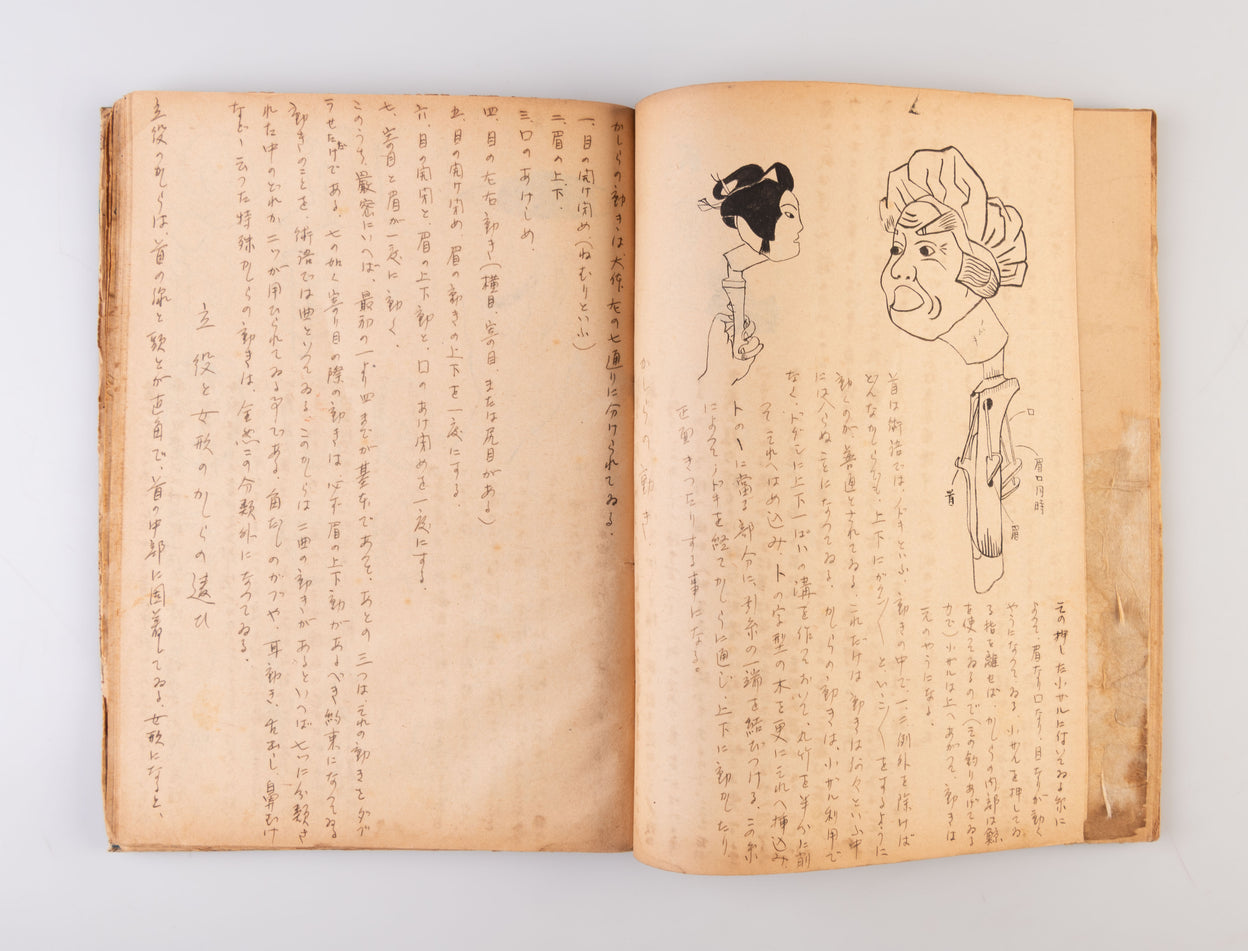 その押した小ザルに付いてゐる糸に
よつて、眉なり口なり、目なりが動く
やうになつてゐる。小ザルを押してゐ
る指を離せば、かしらの内部は鯨
を使つてゐるので(その釣りあげてゐる
力で)小ザルは上へあがつて、動きは
元のやうになる。
口
眉口同時
眉
首
首は術語では、ノドキといふ、動きの中で、一二例外を除けば
どんなかしらでも、上下にガクン〱といふ〱をするように
動くのが、普通とされてゐる。これだけは動きは何々といふ中
には入らぬことになつてゐる。かしらの動きは、小ザル利用で
なく、ドグシに上下一ぱいの溝を作つておいて、丸竹を半分に削
つてそれへはめ込み、トの字型の木を更にそれへ挿込み、
トの丶に當る部分に、引糸の一端を結びつける。この糸
によつて、ノドキを経てかしらに通じ、上下に動かしたり
正面きつたりする事になる。
かしらの動き
かしらの動きは大体左の七通りに分けられてゐる。
一、目の開け閉め(ねむりといふ)
二、眉の上下。
三、口のあけしめ。
四、目の左右動き(横目、寄り目、または尻目がある)
五、目の開け閉め、眉の動きの上下を一度にする。
六、目の開閉と、眉の上下動と、口のあけ閉めを一度にする。
七、寄り目と眉が一度に動く。
このうち、嚴密にいへば、最初の一より四までが基本であつて、あとの三つはそれの動きをダブ
らせただけである。七の如く寄り目の際の動きは必ず眉の上下動があるべき約束になつてゐる
動きのことを術語では曲といつてゐる。このかしらは二曲の動きがあるといへば七いに分類さ
れた中のどれか二ツが用ひられてゐる事である。角だしのガブや、耳動き、舌出し、鼻むけ
など〻云つた特殊かしらの動きは、全然この分類外になつてゐる。
立役と女形のかしらの違ひ
立役のかしらは、首の線と顎とが直角で、首の中部に固着してゐる。女形になると、